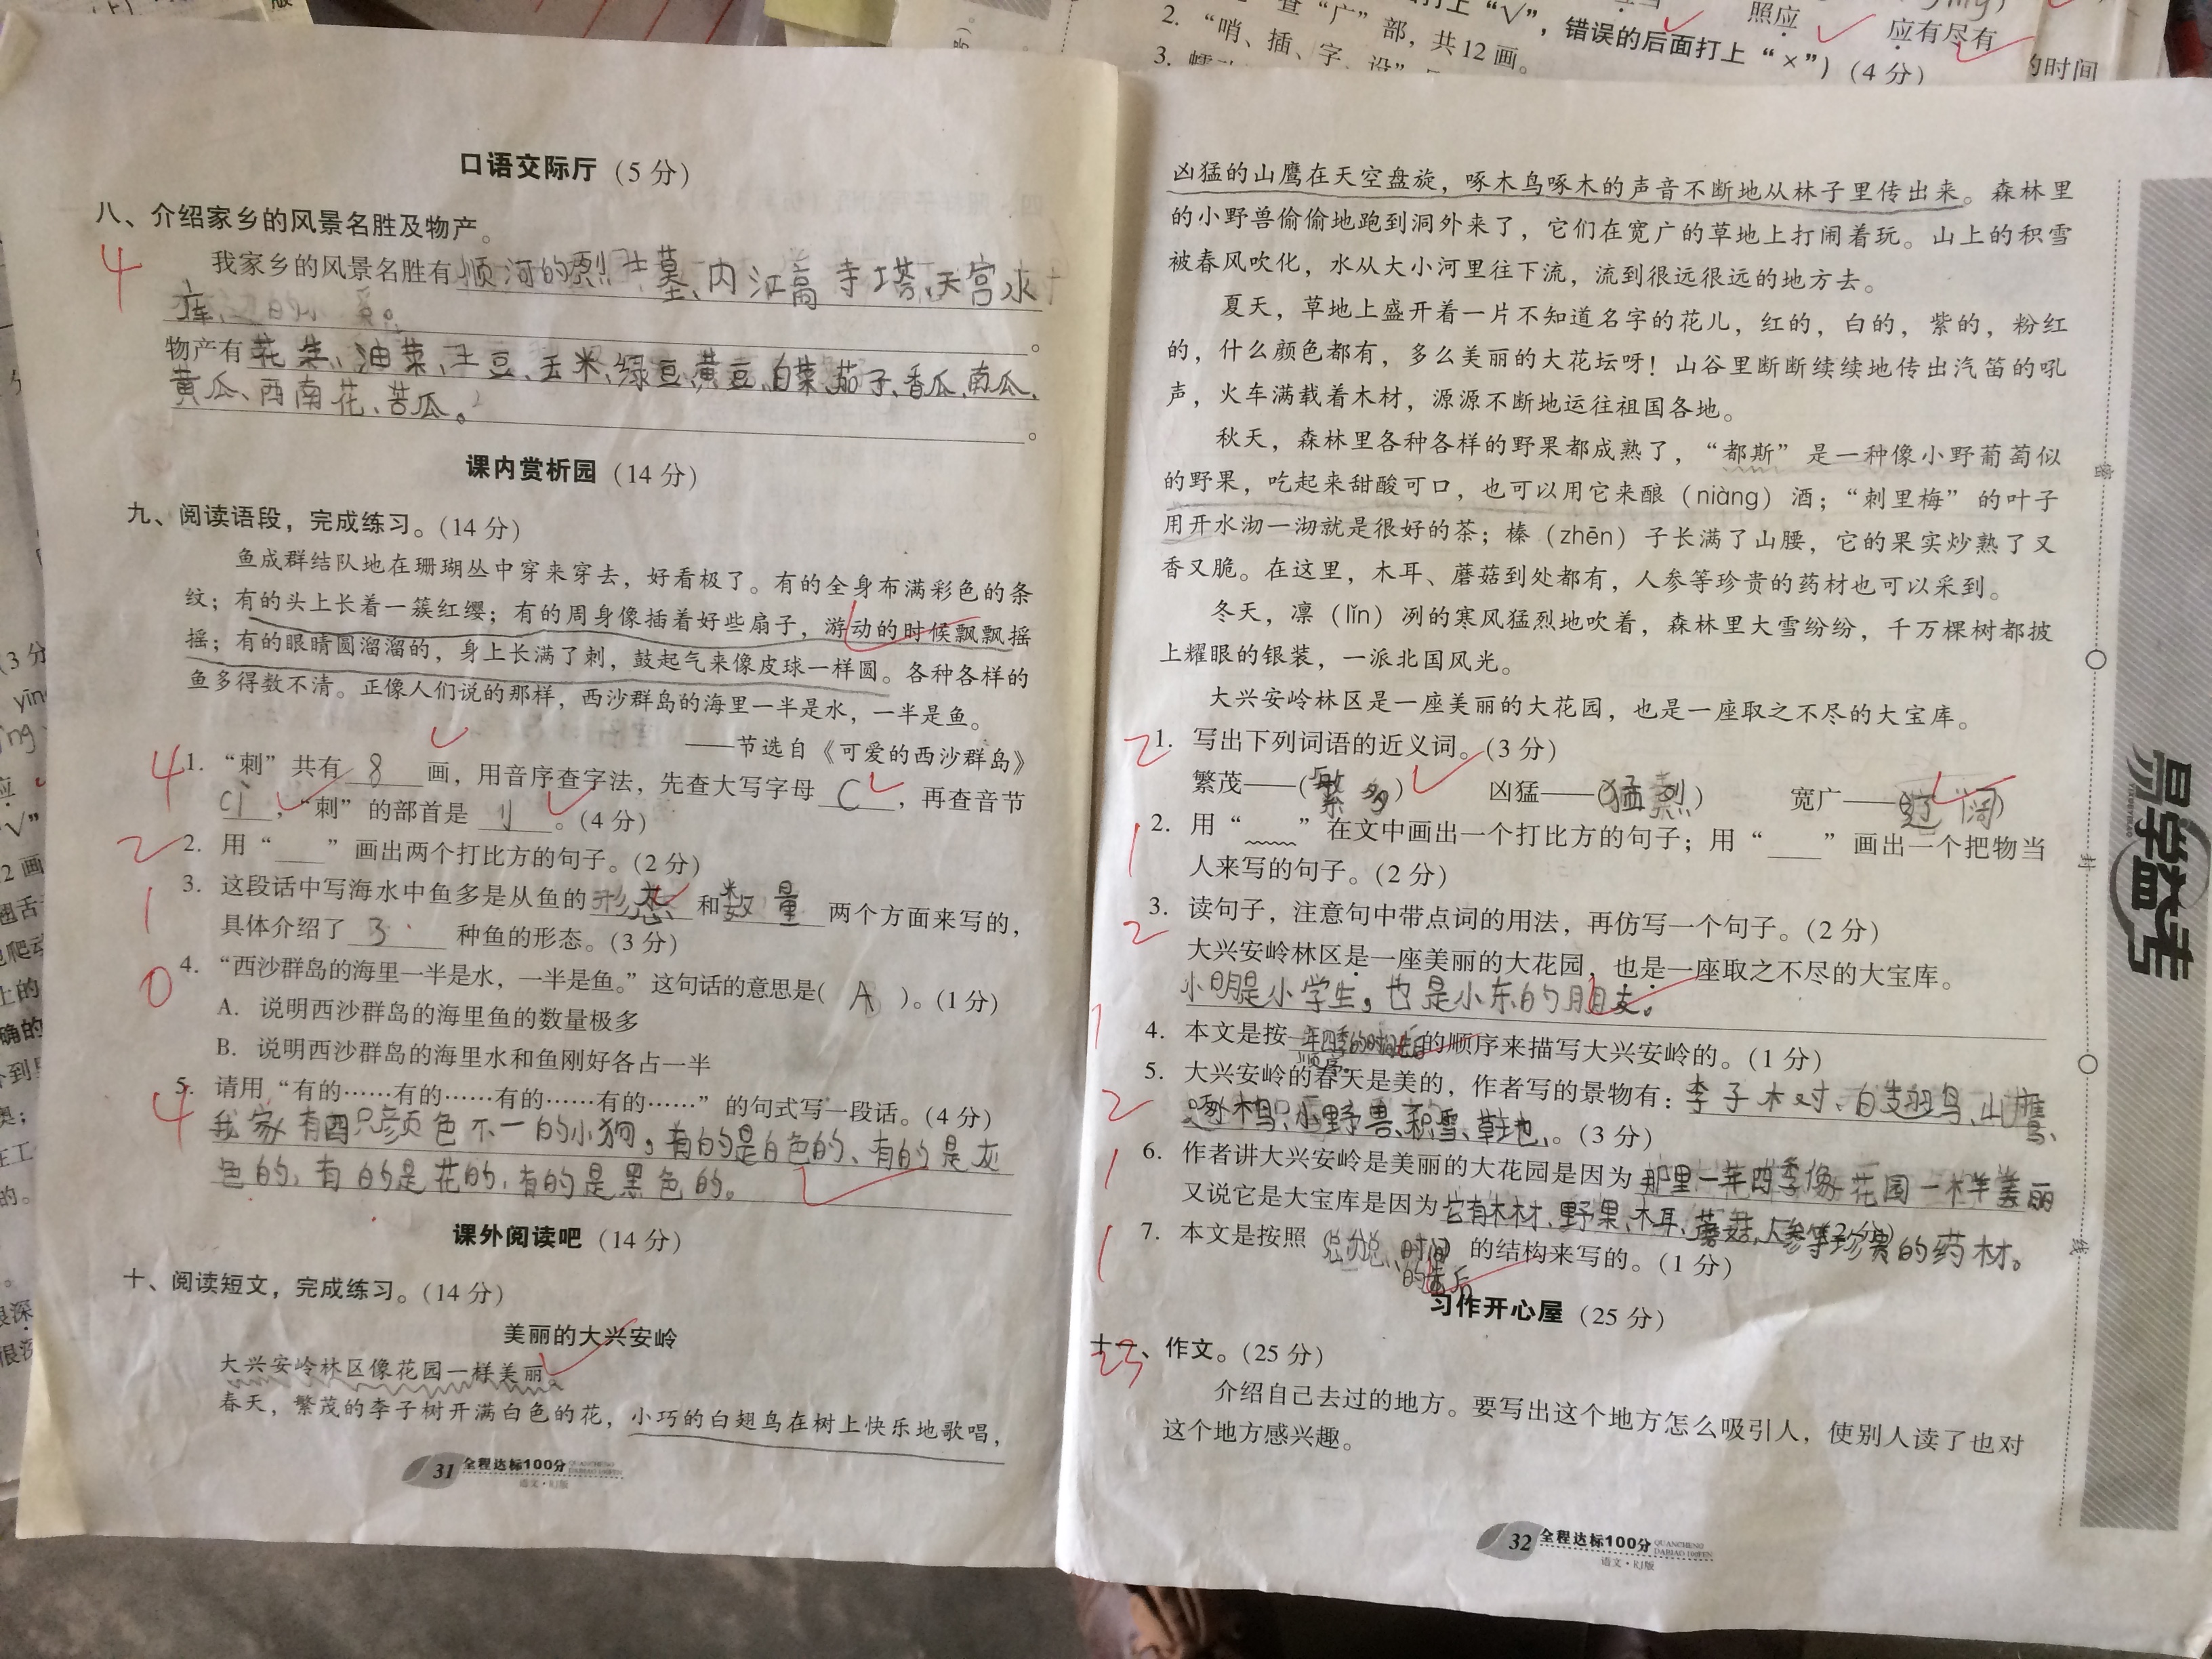 口语交际厅 (5 分)
八、介绍家乡的风景名胜及物产。
4
我家乡的风景名胜有顺河的烈士墓、内江高寺塔、天宫水
库、
物产有花生、油菜、土豆、玉米、绿豆、黄豆、白菜、茄子、香瓜、南瓜、
黄瓜、西南花、苦瓜。
课内赏析园 (14 分)
九、阅读语段，完成练习。(14 分)
鱼成群结队地在珊瑚丛中穿来穿去，好看极了。有的全身布满彩色的条
纹；有的头上长着一簇红缨；有的周身像插着好些扇子，游动的时候飘飘摇
摇；有的眼睛圆溜溜的，身上长满了刺，鼓起气来像皮球一样圆。各种各样的
鱼多得数不清。正像人们说的那样，西沙群岛的海里一半是水，一半是鱼。
——节选自《可爱的西沙群岛》
4
1. “刺”共有 8 画，用音序查字法，先查大写字母 C ，再查音节
ci ，“刺”的部首是 刂 。(4 分)
2
2. 用“___”画出两个打比方的句子。(2 分)
1
3. 这段话中写海水中鱼多是从鱼的 形态 和 数量 两个方面来写的，
具体介绍了 3 种鱼的形态。(3 分)
0
4. “西沙群岛的海里一半是水，一半是鱼。”这句话的意思是( A )。(1 分)
A. 说明西沙群岛的海里鱼的数量极多
B. 说明西沙群岛的海里水和鱼刚好各占一半
4
5. 请用“有的……有的……有的……有的……”的句式写一段话。(4 分)
我家有四只颜色不一的小狗，有的是白色的、有的是灰
色的，有的是花的，有的是黑色的。
课外阅读吧 (14 分)
十、阅读短文，完成练习。(14 分)
美丽的大兴安岭
大兴安岭林区像花园一样美丽。
春天，繁茂的李子树开满白色的花，小巧的白翅鸟在树上快乐地歌唱，
31 全程达标100分 QUANCHENG DABIAO 100FEN
语文·RJ版
凶猛的山鹰在天空盘旋，啄木鸟啄木的声音不断地从林子里传出来。森林里
的小野兽偷偷地跑到洞外来了，它们在宽广的草地上打闹着玩。山上的积雪
被春风吹化，水从大小河里往下流，流到很远很远的地方去。
夏天，草地上盛开着一片不知道名字的花儿，红的，白的，紫的，粉红
的，什么颜色都有，多么美丽的大花坛呀！山谷里断断续续地传出汽笛的吼
声，火车满载着木材，源源不断地运往祖国各地。
秋天，森林里各种各样的野果都成熟了，“都斯”是一种像小野葡萄似
的野果，吃起来甜酸可口，也可以用它来酿（niàng）酒；“刺里梅”的叶子
用开水沏一沏就是很好的茶；榛（zhēn）子长满了山腰，它的果实炒熟了又
香又脆。在这里，木耳、蘑菇到处都有，人参等珍贵的药材也可以采到。
冬天，凛（lǐn）冽的寒风猛烈地吹着，森林里大雪纷纷，千万棵树都披
上耀眼的银装，一派北国风光。
大兴安岭林区是一座美丽的大花园，也是一座取之不尽的大宝库。
2
1. 写出下列词语的近义词。(3 分)
繁茂——(繁多) 凶猛——(猛烈) 宽广——(辽阔)
1
2. 用“﹏﹏”在文中画出一个打比方的句子；用“___”画出一个把物当
人来写的句子。(2 分)
2
3. 读句子，注意句中带点词的用法，再仿写一个句子。(2 分)
大兴安岭林区是一座美丽的大花园，也是一座取之不尽的大宝库。
小明是小学生，也是小东的朋友。
1
4. 本文是按一年四季的时间先后顺序的顺序来描写大兴安岭的。(1 分)
2
5. 大兴安岭的春天是美的，作者写的景物有：李子树、白翅鸟、山鹰、
啄木鸟、小野兽、积雪、草地。(3 分)
1
6. 作者讲大兴安岭是美丽的大花园是因为 那里一年四季像花园一样美丽
又说它是大宝库是因为它有木材、野果、木耳、蘑菇，人参等珍贵的药材。(2 分)
1
7. 本文是按照 时间的先后 的结构来写的。(1 分)
习作开心屋 (25 分)
23
十一、作文。(25 分)
介绍自己去过的地方。要写出这个地方怎么吸引人，使别人读了也对
这个地方感兴趣。
32 全程达标100分 QUANCHENG DABIAO 100FEN
语文·RJ版
密
封
线
易学益考
2. “哨、插、字、设”
查“广”部，共12画。
错误的后面打上“×”）(4 分)
照应 应有尽有
的时间